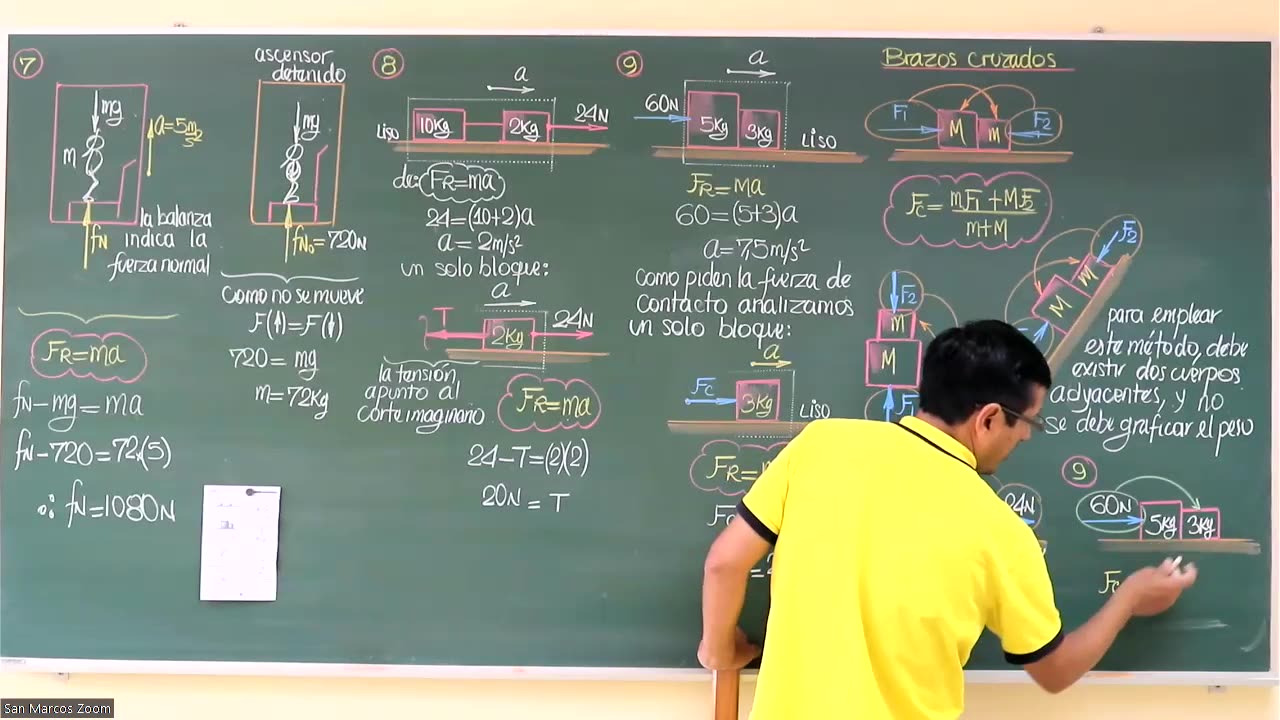 7
mg
m
a=5 m/s²
fN
la balanza
indica la
fuerza normal
FR=ma
fN-mg=ma
fN-720=72.(5)
∴ fN=1080N
ascensor
detenido
mg
fN₀=720N
Como no se mueve
F(↑)=F(↓)
720= mg
m=72Kg
8
a
liso
10Kg
2Kg
24N
de: FR=ma
24=(10+2)a
a=2m/s²
un solo bloque:
a
T
2Kg
24N
la tensión
apunto al
corte imaginario
FR=ma
24-T=(2)(2)
20N = T
9
a
60N
5Kg
3Kg
Liso
FR=Ma
60=(5+3)a
a=7,5m/s²
como piden la fuerza de
contacto analizamos
un solo bloque:
a
Fc
3Kg
Liso
FR=
Brazos cruzados
F1
M
m
F2
Fc= mF1+MF2
m+M
F2
m
M
F1
F2
m
M
para emplear
este método, debe
existir dos cuerpos
adyacentes, y no
se debe graficar el peso
24N
9
60N
5Kg
3Kg
Fc
San Marcos Zoom